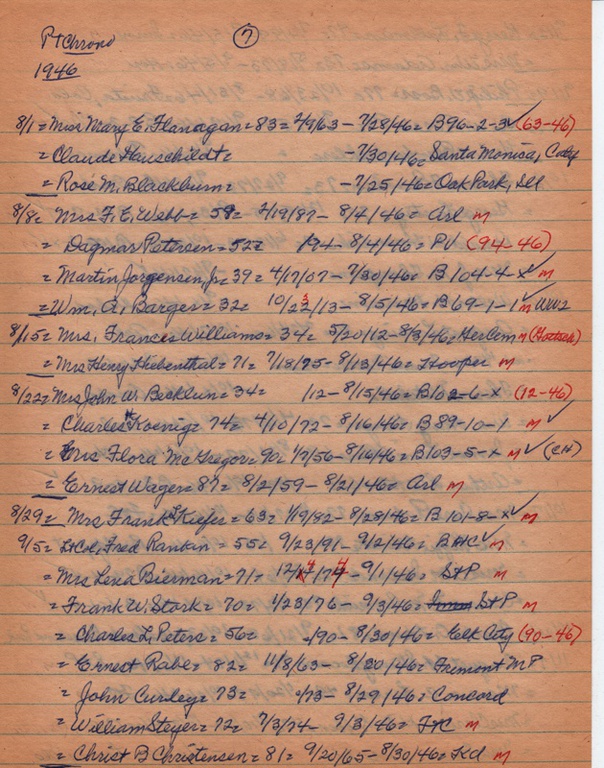 Pt Chrono ⑦
1946
8/1 = Miss Mary E. Flanagan = 83 = 2/9/63 - 7/28/46 = B96-2-3 ✓ (63-46)
= Claude Hauschildt = - 7/30/46 = Santa Monica, Calif
= Rose M. Blackburn = - 7/25/46 = Oak Park, Ill
8/8 = Mrs F. E. Webb = 59 = 2/19/87 - 8/4/46 = Arl m
= Dagmar Petersen = 52 = /94 - 8/4/46 = PV (94-46)
= Martin Jorgensen, Jr = 39 = 4/17/07 - 7/30/46 = B104-4-x ✓ m
= Wm. A. Barges = 32 = 10/23/13 - 8/5/46 = B69-1-1 ✓ m WW2
8/15 = Mrs. Frances Williams = 34 = 5/20/12 - 8/3/46 = Her Cem m
= Mrs Henry Hiebenthal = 71 = 7/18/75 - 8/13/46 = Hooper m
8/22 = Mrs John W. Becklun = 34 = /12 - 8/15/46 = B102-6-x (12-46)
= Charles H Koenig = 74 = 4/10/72 - 8/16/46 = B89-10-1 m ✓
= Mrs Flora McGregor = 90 = 1/7/56 - 8/16/46 = B103-5-x m ✓ (CH)
= Ernest Wager = 87 = 8/2/59 - 8/21/46 = Arl m
8/29 = Mrs Frank Kiefer = 63 = 1/19/82 - 8/28/46 = B101-8-x ✓ m
9/5 = Lt Col, Fred Rankin = 55 = 9/23/91 - 9/2/46 = BHC ✓ m
= Mrs Lena Bierman = 71 = 12/ /74 - 9/1/46 = StP m
= Frank W. Stork = 70 = 1/23/76 - 9/3/46 = StP m
= Charles L. Peters = 56 = /90 - 8/30/46 = Elk City (90-46)
= Ernest Rabe = 82 = 11/8/63 - 8/30/46 = Fremont MP
= John Curley = 73 = /73 - 8/29/46 = Concord
= William Steyer = 72 = 7/3/74 - 9/3/46 = m
= Christ B Christensen = 81 = 9/20/65 - 8/30/46 = Kd m